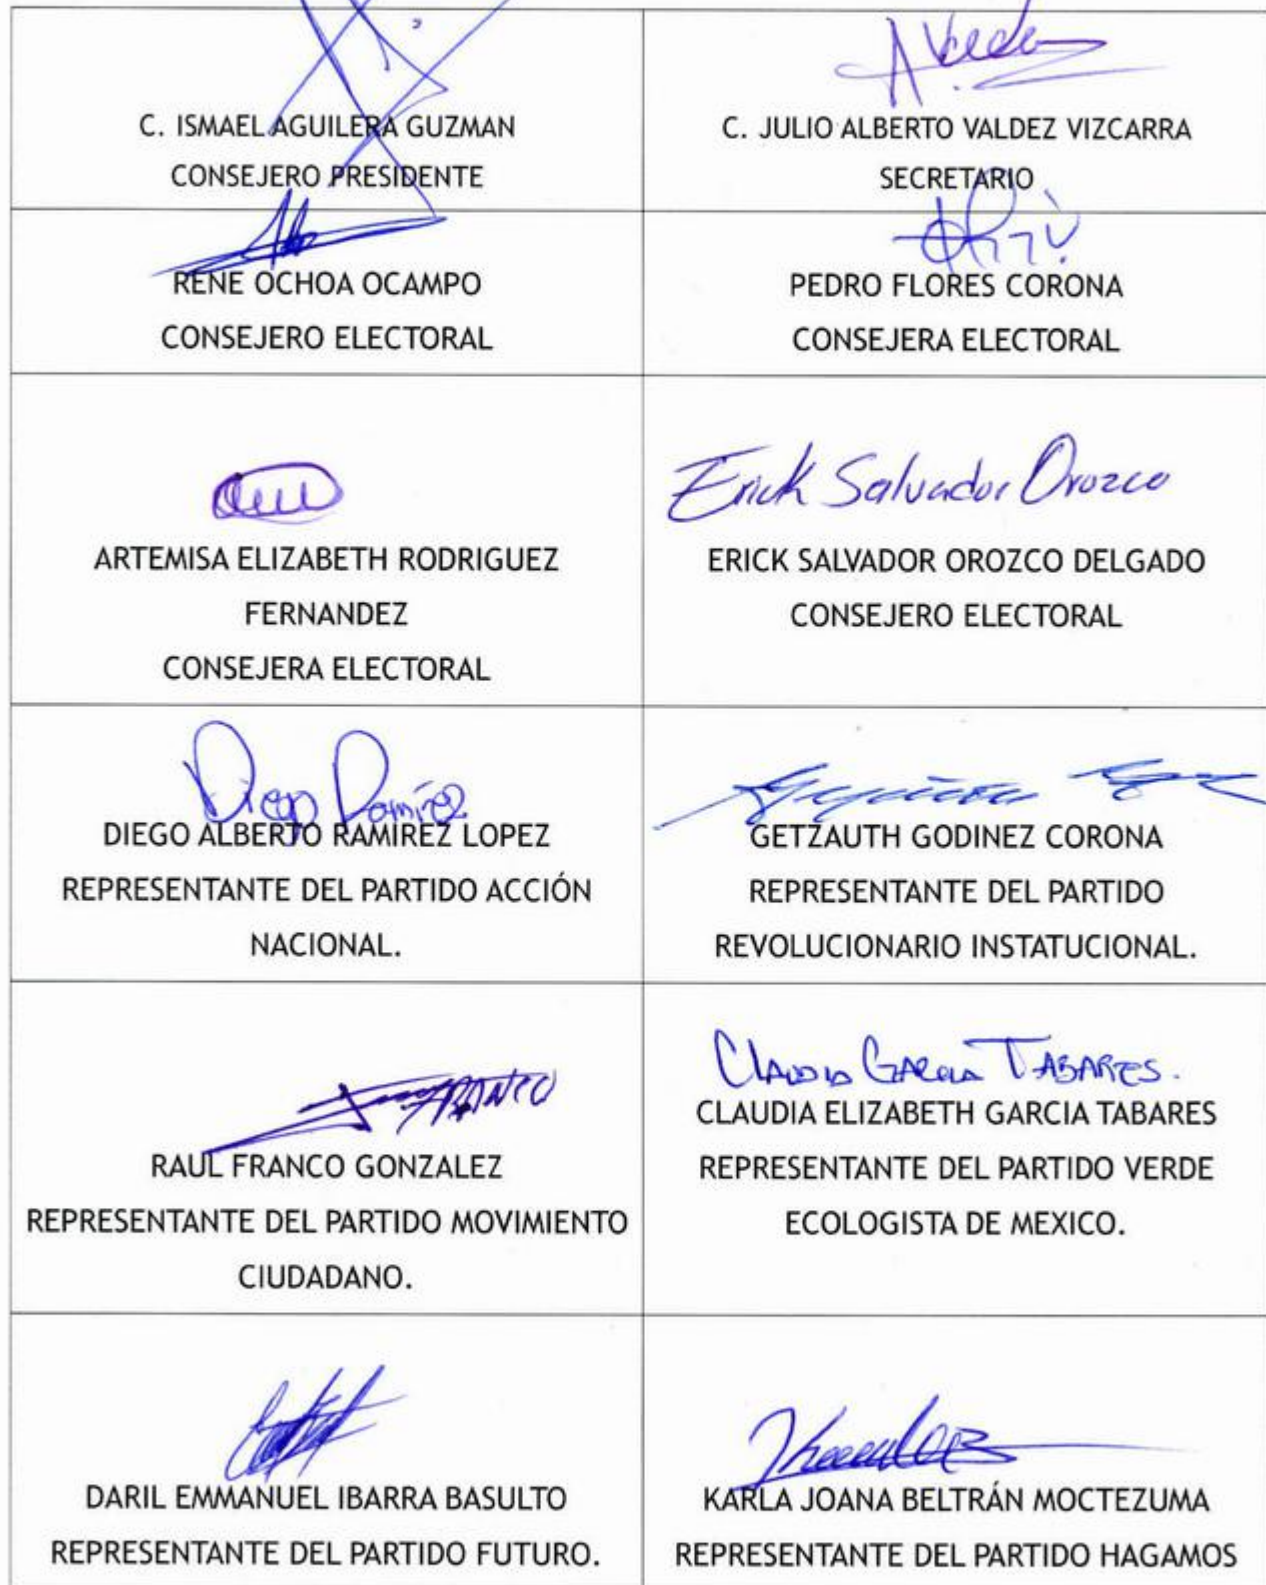 A Valdez
C. ISMAEL AGUILERA GUZMAN
CONSEJERO PRESIDENTE
C. JULIO ALBERTO VALDEZ VIZCARRA
SECRETARIO
RENE OCHOA OCAMPO
CONSEJERO ELECTORAL
PEDRO FLORES CORONA
CONSEJERA ELECTORAL
ARTEMISA ELIZABETH RODRIGUEZ
FERNANDEZ
CONSEJERA ELECTORAL
Erick Salvador Orozco
ERICK SALVADOR OROZCO DELGADO
CONSEJERO ELECTORAL
Diego Ramírez
DIEGO ALBERTO RAMIREZ LOPEZ
REPRESENTANTE DEL PARTIDO ACCIÓN
NACIONAL.
GETZAUTH GODINEZ CORONA
REPRESENTANTE DEL PARTIDO
REVOLUCIONARIO INSTATUCIONAL.
FRANCO
RAUL FRANCO GONZALEZ
REPRESENTANTE DEL PARTIDO MOVIMIENTO
CIUDADANO.
CLAUDIA GARCIA TABARES.
CLAUDIA ELIZABETH GARCIA TABARES
REPRESENTANTE DEL PARTIDO VERDE
ECOLOGISTA DE MEXICO.
DARIL EMMANUEL IBARRA BASULTO
REPRESENTANTE DEL PARTIDO FUTURO.
KARLA JOANA BELTRÁN MOCTEZUMA
REPRESENTANTE DEL PARTIDO HAGAMOS